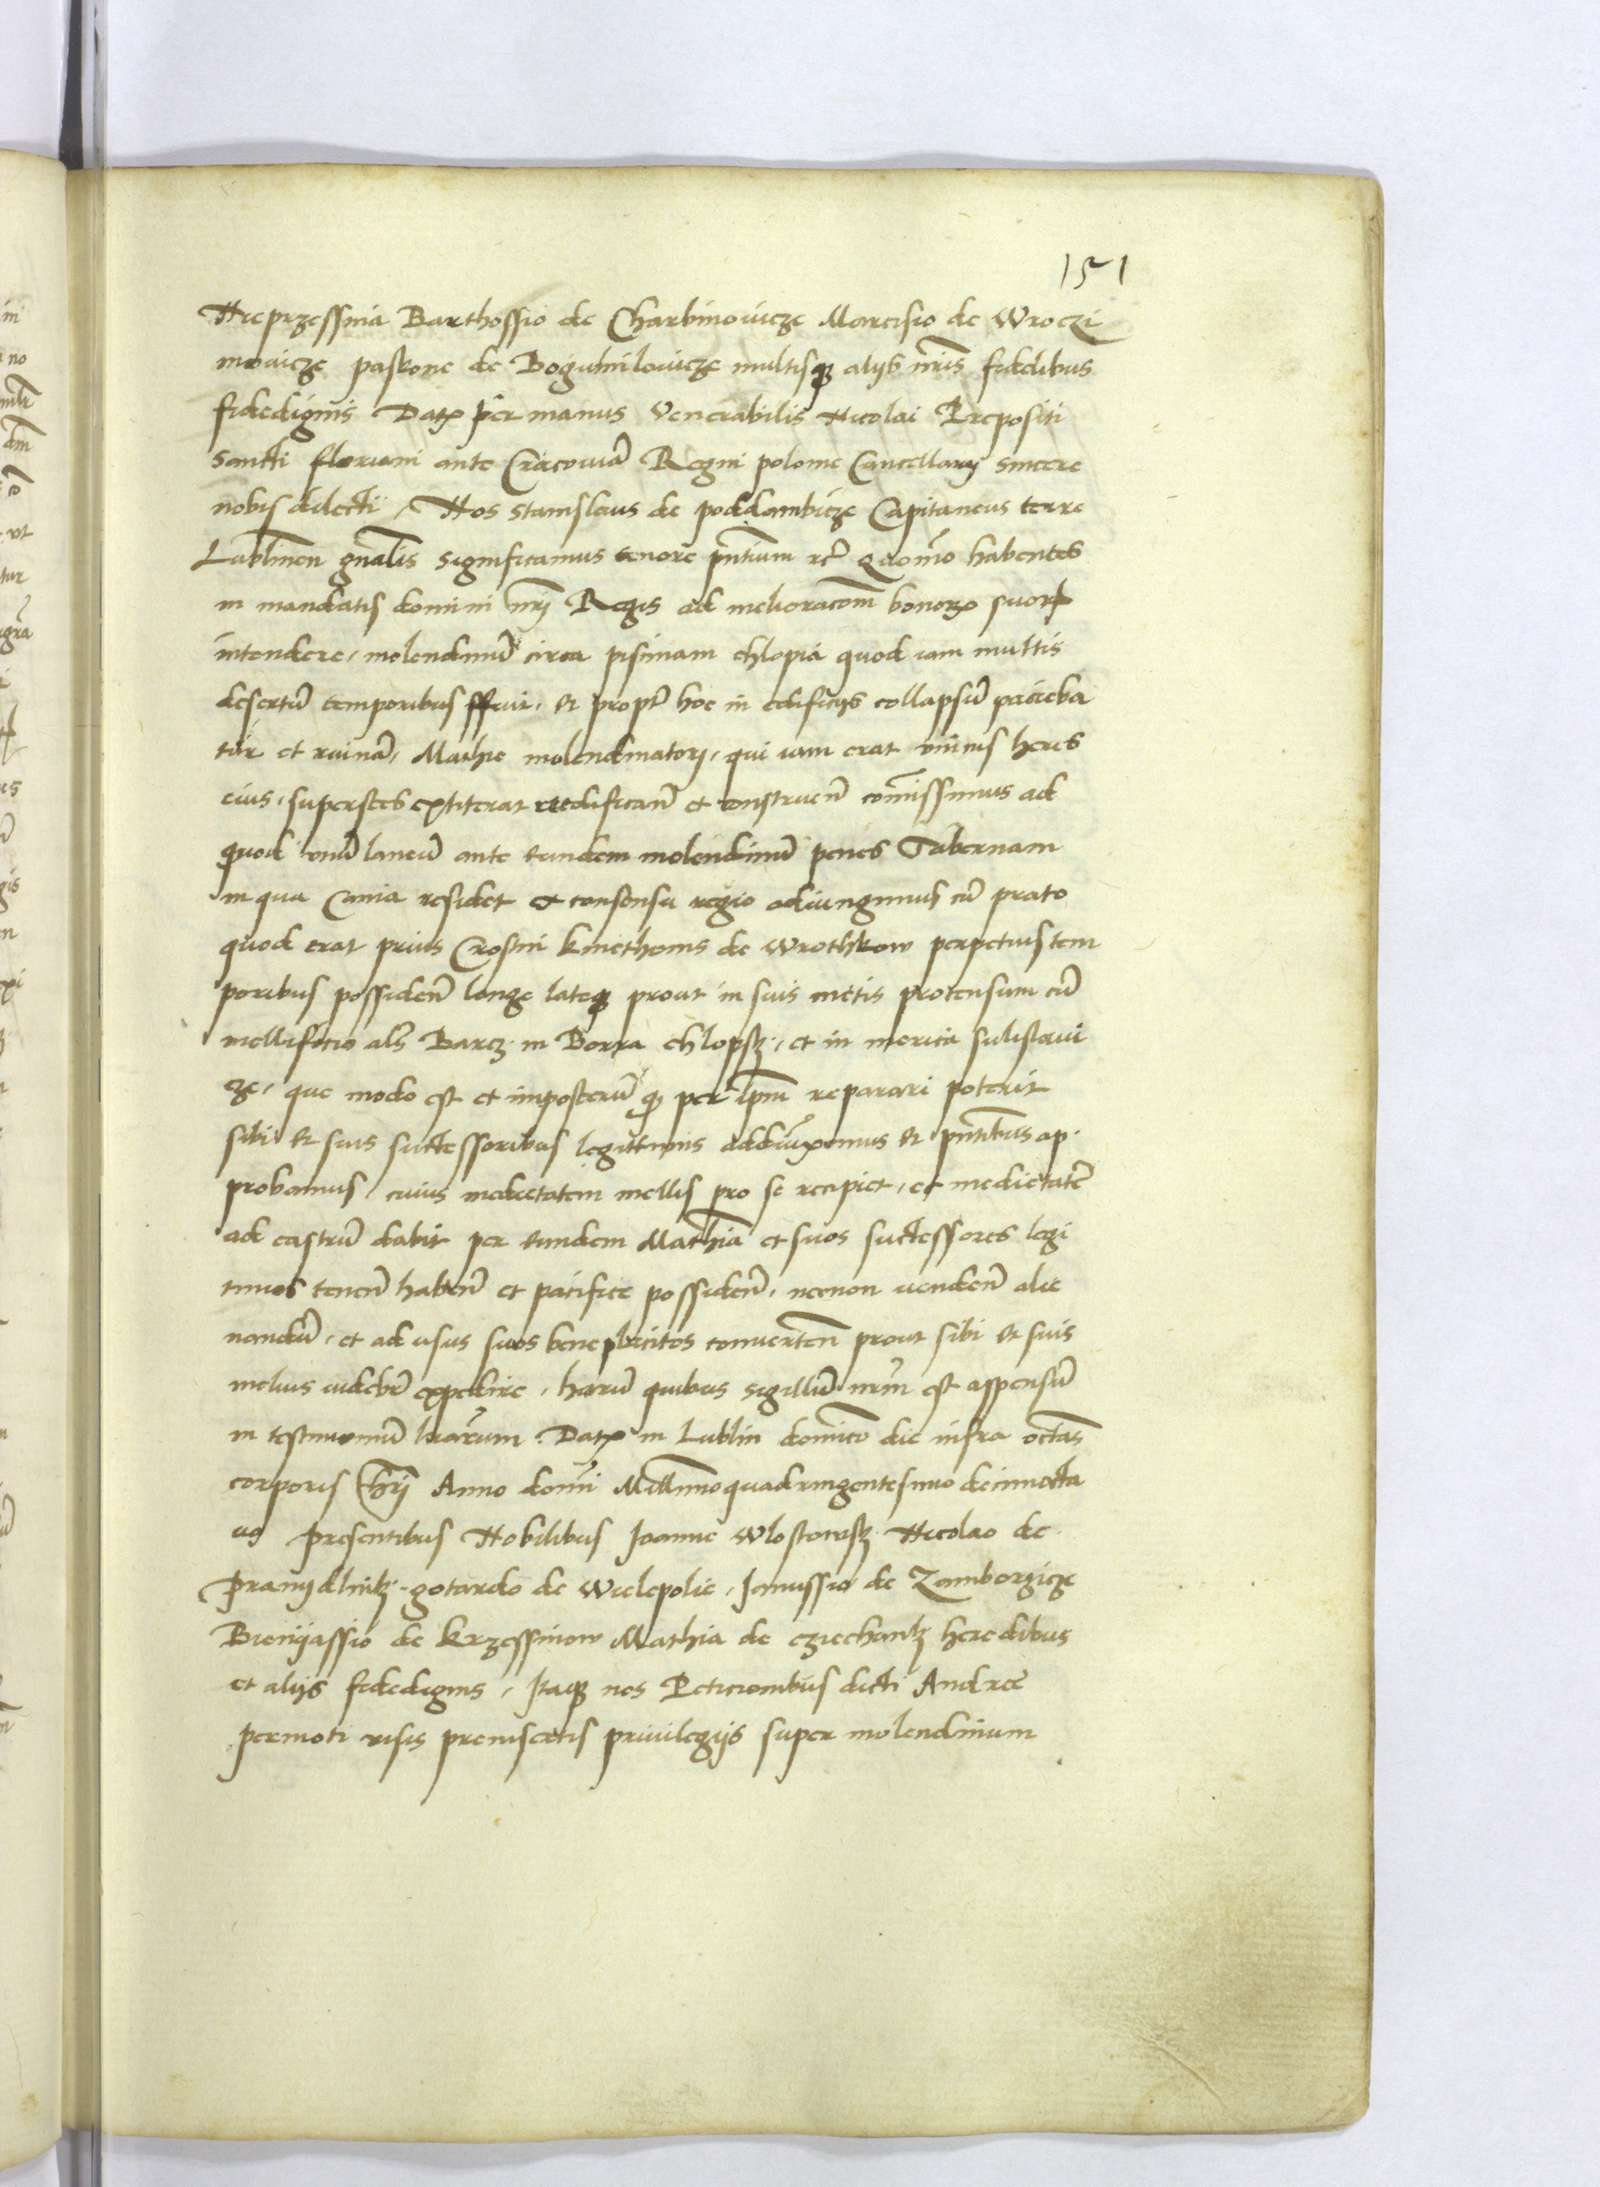 151
Nieprzessnia Barthossio de Charbinowicze Marcisio de Wroczi
mowicze paskone de Bogumilowicze multisq3 alijs nris fidelibus
fidedignis Datx per manus Venerabilis Nicolai Prepositi
Sancti floriani ante Cracouiā Regni polonie Cancellarij sincere
nobis dilecti / Nos Stanislaus de poddambicze Capitaneus terre
Lublinen gnalis significamus tenore pntium rc̄ Quomō habentes
in mandatis domini nrj Regis ad melioracōm bonorx suorx
intendere, molendinū circa piscinam chlopia quod iam multis
desertū temporibus ffuit, et propt hoc in edificijs collapsū pacieba
tur et ruinā, Mathie molendinatorj, qui iam erat vnius heres
eius, superstes extiterat reedificand et construend comissimus ad
quod vnū laneū ante eundem molendinū penes Tabernam
in qua Cania residet et consensu regio adiungimus cū prato
quod erat prius Crosni kmethonis de Wrothkow perpetuis tem
poribus possidend longe lateq3 prout in suis metis protensum cū
mellificio als Barcz in Borra chlopsk, et in merica sulislaui
cze, que modo est et imposterū q3 per ipm reparari poterit
sibi et suis successoribus legittimis adduximus et pntibus ap
probamus, cuius medietatem mellis pro se recipiet, et medietatē
ad castrū dabit per eundem Mathiā et suos successores legi
timos tenend habend et pacifice possidend, necnon vendend alie
nandū, et ad vsus suos beneplacitos convertend prout sibi et suis
melius videbr expedire, harū quibus sigillū nrm est appensū
in testimoniū lrarum. Datx in Lublin dominico die infra octas
corporis xpi Anno domi Millimoquadringentesimo decimocta
uo Presentibus Nobilibus Joanne Wlostowsk Nicolao de
Pranijdlnik, gotardo de Wielepolie, Janussio de Zamborzicze
Bieniassio de krzessimow Mathia de cziechank heredibus
et alijs fidedignis, Itaq3 nos Peticionibus dicti Andree
permoti visis preinsertis priuilegijs super molendinum